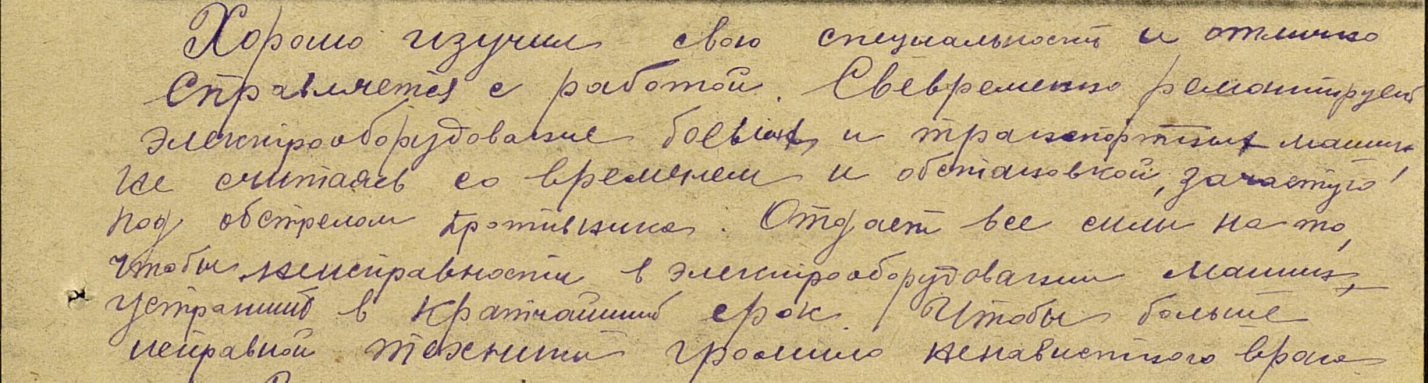 Хорошо изучил свою специальность и отлично
справляется с работой. Свевременно ремонтирует
электрооборудование боевых и транспортных машин,
не считаясь со временем и обстановкой, зачастую
под обстрелом противника. Отдает все силы на то,
чтобы неисправности в электрооборудовании машин,
устранить в кратчайший срок. Чтобы больше
исправной техники громило ненавистного врага